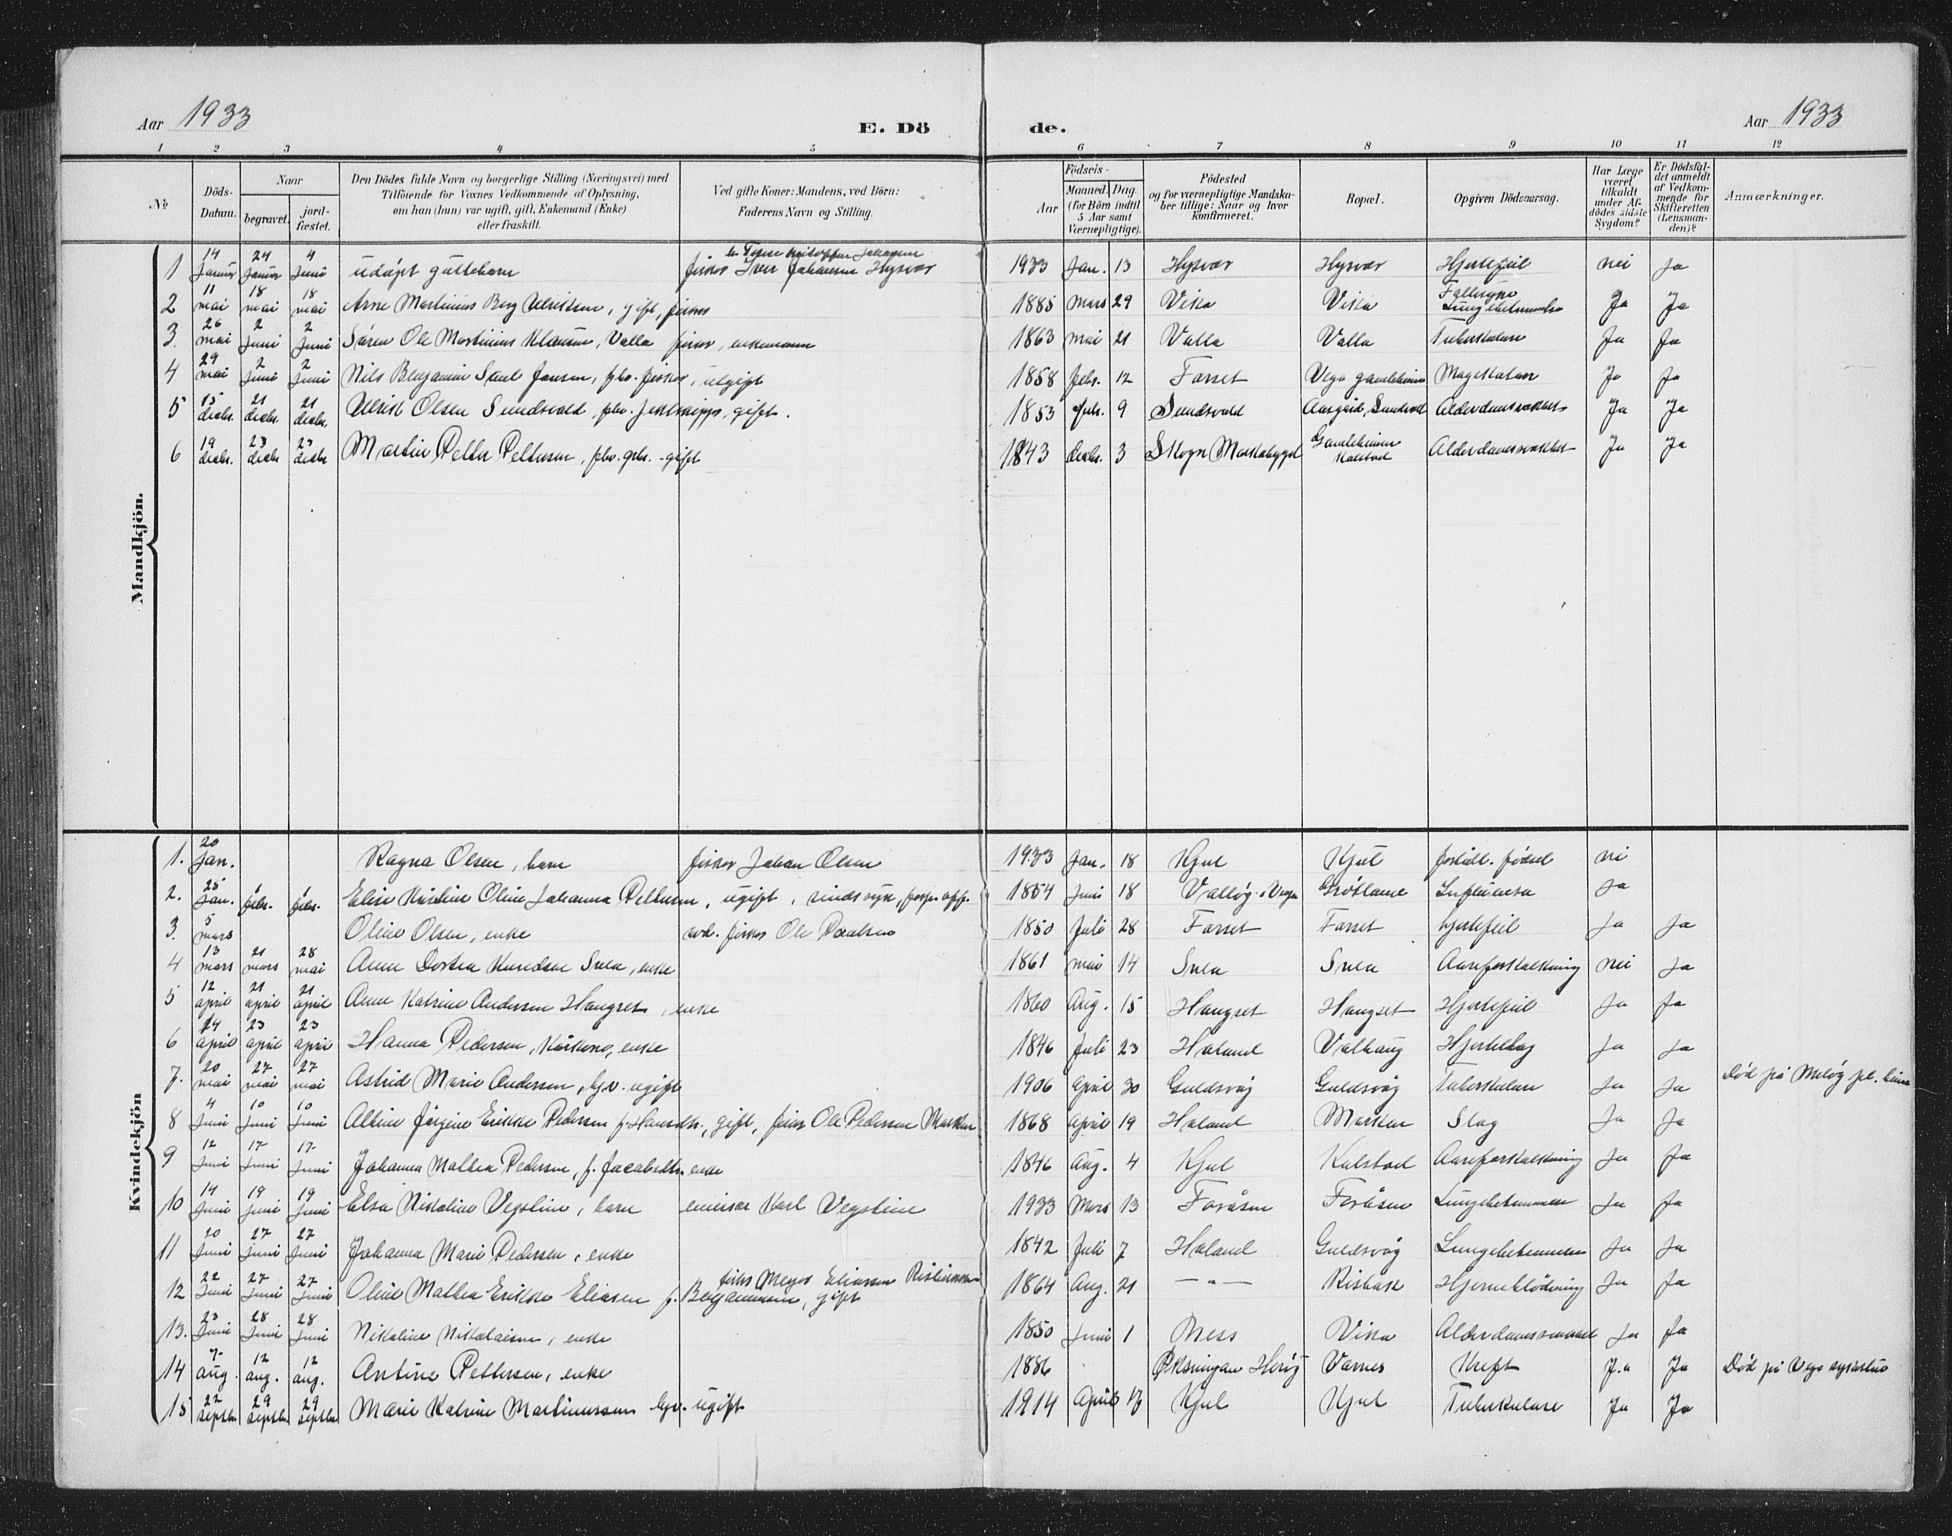 Aar 1933 E. Dö de. Aar 1933
1 2 3 4 5 6 7 8 9 10 11 12
№ Döds-Datum. Naar begravet. jord-fæstet. Den Dödes fulde Navn og borgerlige Stilling (Næringsvei) med Tilföiende for Voxnes Vedkommende af Oplysning, om han (hun) var ugift, gift, Enkemand (Enke) eller fraskilt. Ved gifte Koner: Mandens, ved Börn: Faderens Navn og Stilling. Födsels- Aar Maaned. Dag. (for Börn indtil 5 Aar samt Værnepligtige). Födested og for værnepligtige Mandskaber tillige: Naar og hvor Konfirmeret. Bopæl. Opgiven Dödsaarsag. Har Læge været tilkaldt under Afdödes sidste Sygdom? Er Dödsfaldet anmeldt af Vedkommende for Skifteretten (Lensmanden)? Anmærkninger.
Mandkjön.
1 14 Januar 24 Januar 4 Juni udøpt guttebarn fisker Iver Johansen Hysvær 1933 Jan. 13 Hysvær Hysvær Hjertefeil nei ja
2 11 mai 18 mai 18 mai Arne Martinius Berg Ulriksen, gift, fisker 1885 mars 29 Vika Vika Fallesyke Lungebetennelse Ja Ja
3. 26 mai 2 Juni 2 Juni Søren Ole Martinius Klausen, Valla fisker, enkemann 1863 mai 21 Valla Valla Tuberkulose Ja Ja
4 29 mai 2 Juni 2 Juni Nils Benjamin Jansen, fhv. fisker, ugift 1858 febr. 12 Forset Vega gamleheim Magekatar Ja Ja
5 15 decbr. 21 decbr. 21 decbr. Ulrik Olsen Sundsvold, fhv. jekteskipp., gift. 1853 febr. 9 Sundsvold Aasgård, Sundsvold Alderdomssvakhet Ja Ja
6 19 decbr. 23 decbr. 23 decbr Martin Petter Pettersen, fhv. gbr. - gift 1843 decbr. 3 Skogn Markabygd Gamleheimen Kalstad Alderdomssvakhet Ja Ja
Kvindekjön
1. 20 Jan. Ragna Olsen, barn fisker Johan Olsen 1933 Jan. 18 Kjul Kjul fortidl. fødsel nei
2. 25 Jan. febr. febr. Elise Kristine Oline Johanna Pettersen, ugift, sindssyk, 1854 Juni 18 Valløg i Vega Grøtlanne Influensa Ja
3. 5 mars Oline Olsen, enke avd. fisker Ole Paulsen 1850 Juli 28 Forset Forset hjertefeil Ja Ja
4 13 mars 21 mars 28 mai Anne Dortea Knudsen Sula, enke 1861 mai 14 Sula Sula Aareforkalkning nei Ja
5 12 april 21 april 21 april Anne Katrine Andersen Hongset, enke 1860 Aug. 15 Hongset Hongset Hjertefeil Ja Ja
6 14 april 23 april 23 april Hanna Pedersen, Kårkone, enke 1846 Juli 23 Holand Valhaug Hjerteslag Ja Ja
7. 20 mai 27 mai 27 mai Astrid Marie Andersen, hjv. ugift 1906 April 30 Guldsvåg Guldsvåg Tuberkulose Ja Ja Død på Meløy pl. heim
8 4 Juni 10 Juni 10 Juni Altine Jørgine Erikke Pedersen f. Hansdtr., gift, fisker Ole Pedersen Marken 1868 April 19 Holand Marken Slag Ja Ja
9 12 Juni 17 Juni 17 Juni Johanna Maltea Pedersen, f. Jacobsdtr. enke 1846 Aug. 4 Kjul Kalstad Aareforkalkning Ja Ja
10 14 Juni 19 Juni 19 Juni Elsa Nikoline Vegstein, barn emissær Karl Vegstein 1933 Mars 13 Foråsen Foråsen Lungebetennelse Ja Ja
11 20 Juni 27 Juni 27 Juni Johanna Marie Pedersen, enke 1842 Juli 7 Holand Guldsvåg Lungebetennelse Ja Ja
12 22 Juni 27 Juni 27 Juni Oline Maltea Erikke Eliasen f. Benjaminsen, gift fisker Meyer Eliassen 1864 Aug. 21 — " — Risbask Hjerneblødning Ja Ja
13. 23 Juni 28 Juni 28 Juni Nikoline Nikolaisen, enke 1850 Juni 1 Ness Vika Alderdomssvakhet Ja Ja
14 7 aug. 12 aug. 12 aug. Antine Pettersen, enke 1886 Øksningan Herøy Varnes Kreft Ja Ja Død på Vega sykestue
15 22 septbr 29 septbr 29 septbr Marie Katrine Martinussen hjv. ugift 1914 April 16 Kjul Kjul Tuberkulose Ja Ja